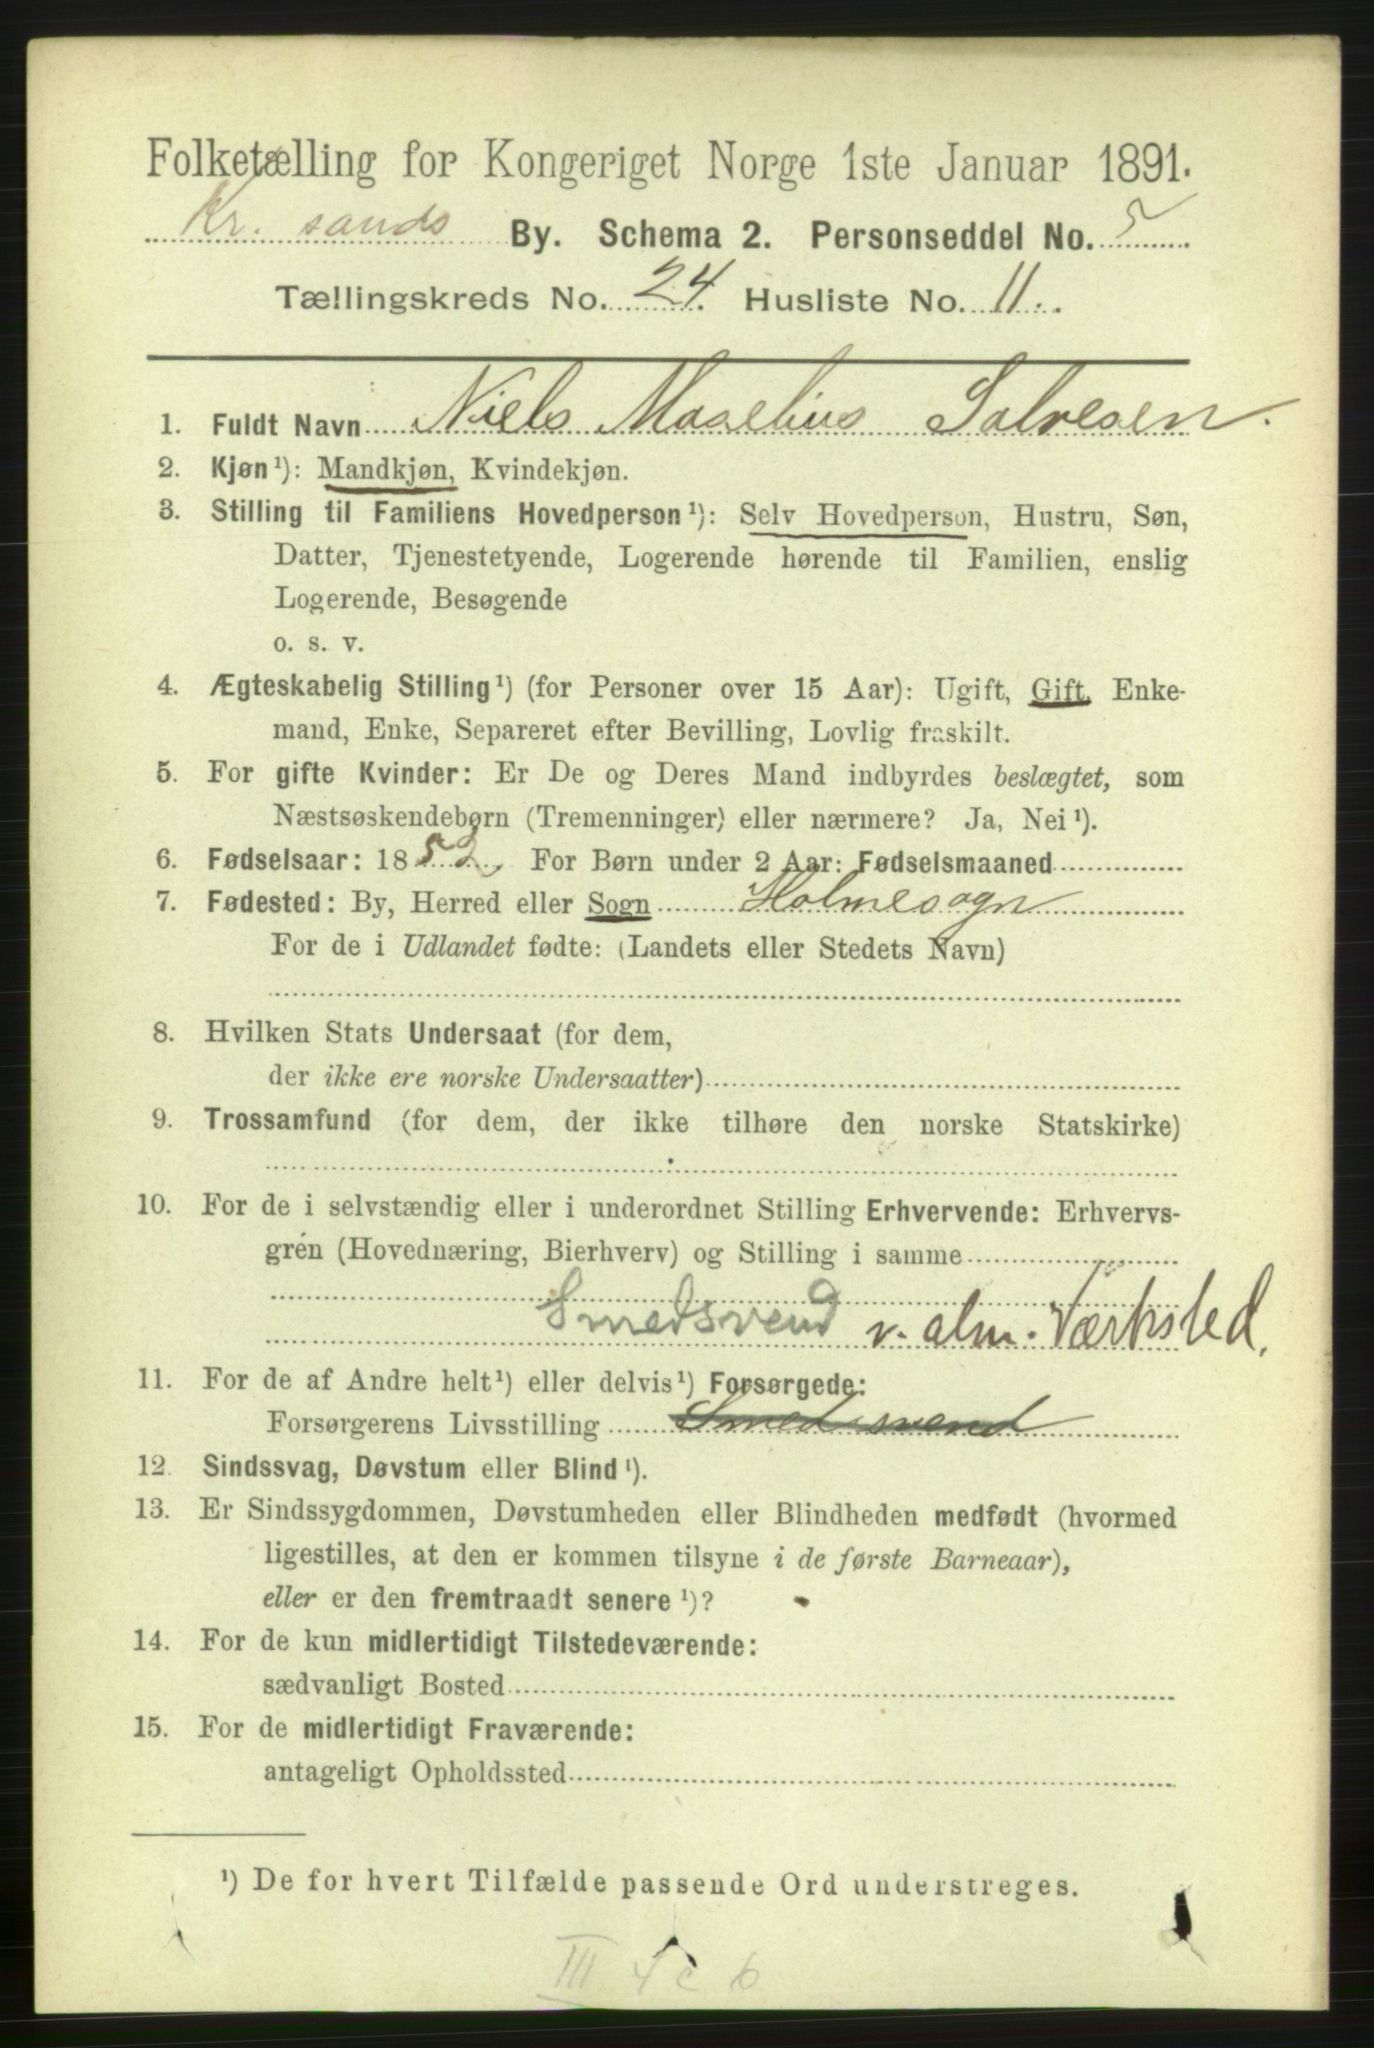 Folketælling for Kongeriget Norge 1ste Januar 1891.
Kr. sands By. Schema 2. Personseddel No. 5
Tællingskreds No. 24. Husliste No. 11.
1. Fuldt Navn Niels Maselius Salvesen.
2. Kjøn¹): Mandkjøn, Kvindekjøn.
3. Stilling til Familiens Hovedperson¹): Selv Hovedperson, Hustru, Søn,
Datter, Tjenestetyende, Logerende hørende til Familien, enslig
Logerende, Besøgende
o. s. v.
4. Ægteskabelig Stilling¹) (for Personer over 15 Aar): Ugift, Gift, Enke-
mand, Enke, Separeret efter Bevilling, Lovlig fraskilt.
5. For gifte Kvinder: Er De og Deres Mand indbyrdes beslægtet, som
Næstsøskendebørn (Tremenninger) eller nærmere? Ja, Nei¹).
6. Fødselsaar: 1852. For Børn under 2 Aar: Fødselsmaaned
7. Fødested: By, Herred eller Sogn Holmesogn
For de i Udlandet fødte: (Landets eller Stedets Navn)
8. Hvilken Stats Undersaat (for dem,
der ikke ere norske Undersaatter)
9. Trossamfund (for dem, der ikke tilhøre den norske Statskirke)
10. For de i selvstændig eller i underordnet Stilling Erhvervende: Erhvervs-
grén (Hovednæring, Bierhverv) og Stilling i samme
Smedsvend v. alm. Værksted.
11. For de af Andre helt¹) eller delvis¹) Forsørgede:
Forsørgerens Livsstilling Smedsvend
12. Sindssvag, Døvstum eller Blind¹).
13. Er Sindssygdommen, Døvstumheden eller Blindheden medfødt (hvormed
ligestilles, at den er kommen tilsyne i de første Barneaar),
eller er den fremtraadt senere¹)?
14. For de kun midlertidigt Tilstedeværende:
sædvanligt Bosted
15. For de midlertidigt Fraværende:
antageligt Opholdssted
¹) De for hvert Tilfælde passende Ord understreges.
III 4 c 6